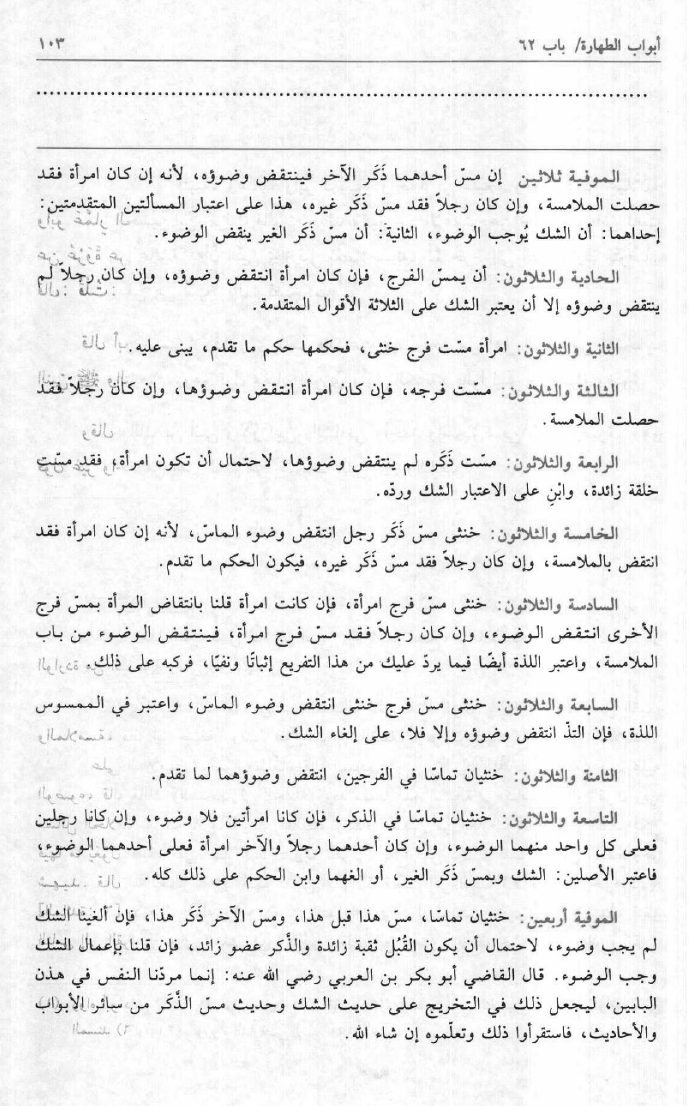 أبواب الطهارة/ باب ٦٢
١٠٣
الموفية ثلاثين إن مسّ أحدهما ذَكَر الآخر فينتقض وضوؤه، لأنه إن كان امرأة فقد
حصلت الملامسة، وإن كان رجلاً فقد مسّ ذَكَر غيره، هذا على اعتبار المسألتين المتقدمتين:
إحداهما: أن الشك يُوجب الوضوء، الثانية: أن مسّ ذَكَر الغير ينقض الوضوء.
الحادية والثلاثون: أن يمسّ الفرج، فإن كان امرأة انتقض وضوؤه، وإن كان رجلاً لم
ينتقض وضوؤه إلا أن يعتبر الشك على الثلاثة الأقوال المتقدمة.
الثانية والثلاثون: امرأة مسّت فرج خنثى، فحكمها حكم ما تقدم، يبنى عليه.
الثالثة والثلاثون: مسّت فرجه، فإن كان امرأة انتقض وضوؤها، وإن كان رجلاً فقد
حصلت الملامسة.
الرابعة والثلاثون: مسّت ذَكَره لم ينتقض وضوؤها، لاحتمال أن تكون امرأة، فقد مسّت
خلقة زائدة، وابْنِ على الاعتبار الشك وردّه.
الخامسة والثلاثون: خنثى مسّ ذَكَر رجل انتقض وضوء الماسّ، لأنه إن كان امرأة فقد
انتقض بالملامسة، وإن كان رجلاً فقد مسّ ذَكَر غيره، فيكون الحكم ما تقدم.
السادسة والثلاثون: خنثى مسّ فرج امرأة، فإن كانت امرأة قلنا بانتقاض المرأة بمسّ فرج
الأخرى انتقض الوضوء، وإن كان رجلاً فقد مسّ فرج امرأة، فينتقض الوضوء من باب
الملامسة، واعتبر اللذة أيضًا فيما يردّ عليك من هذا التفريع إثباتًا ونفيًا، فركبه على ذلك.
السابعة والثلاثون: خنثى مسّ فرج خنثى انتقض وضوء الماسّ، واعتبر في الممسوس
اللذة، فإن التذّ انتقض وضوؤه وإلا فلا، على إلغاء الشك.
الثامنة والثلاثون: خنثيان تماسّا في الفرجين، انتقض وضوؤهما لما تقدم.
التاسعة والثلاثون: خنثيان تماسّا في الذكر، فإن كانا امرأتين فلا وضوء، وإن كانا رجلين
فعلى كل واحد منهما الوضوء، وإن كان أحدهما رجلاً والآخر امرأة فعلى أحدهما الوضوء،
فاعتبر الأصلين: الشك وبمسّ ذَكَر الغير، أو الغهما وابن الحكم على ذلك كله.
الموفية أربعين: خنثيان تماسّا، مسّ هذا قبل هذا، ومسّ الآخر ذَكَر هذا، فإن ألغينا الشك
لم يجب وضوء، لاحتمال أن يكون القُبُل ثقبة زائدة والذَّكر عضو زائد، فإن قلنا بإعمال الشك
وجب الوضوء. قال القاضي أبو بكر بن العربي رضي الله عنه: إنما مردّنا النفس في هذن
البابين، ليجعل ذلك في التخريج على حديث الشك وحديث مسّ الذَّكَر من سائر الأبواب
والأحاديث، فاستقرأوا ذلك وتعلّموه إن شاء الله.